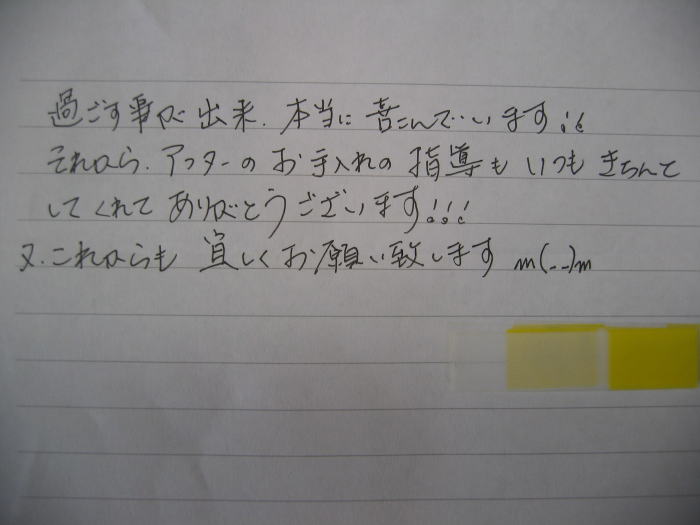 過ごす事が出来、本当に喜こんでいます!!
それから、アフターのお手入れの指導もいつもきちんと
してくれてありがとうございます!!!
又、これからも宜しくお願い致します m(_ _)m